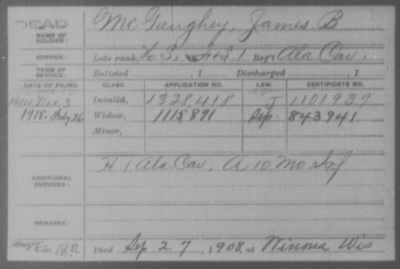 DEAD
NAME OF SOLDIER: McGaughey, James B
SERVICE: Late rank, Co. I, Reg't Ala Cav.
TERM OF SERVICE: Enlisted , 1 Discharged , 1
DATE OF FILING. CLASS. APPLICATION NO. LAW. CERTIFICATE NO.
Dec. 3 Invalid, 1328418 J 1101939
1918. Feby 26 Widow, 1115891 Sep. 843941
Minor,
ADDITIONAL SERVICES: H 1 Ala Cav. A 10 Mo Inf
REMARKS:
Died Sep 27, 1908, at Winona Wis